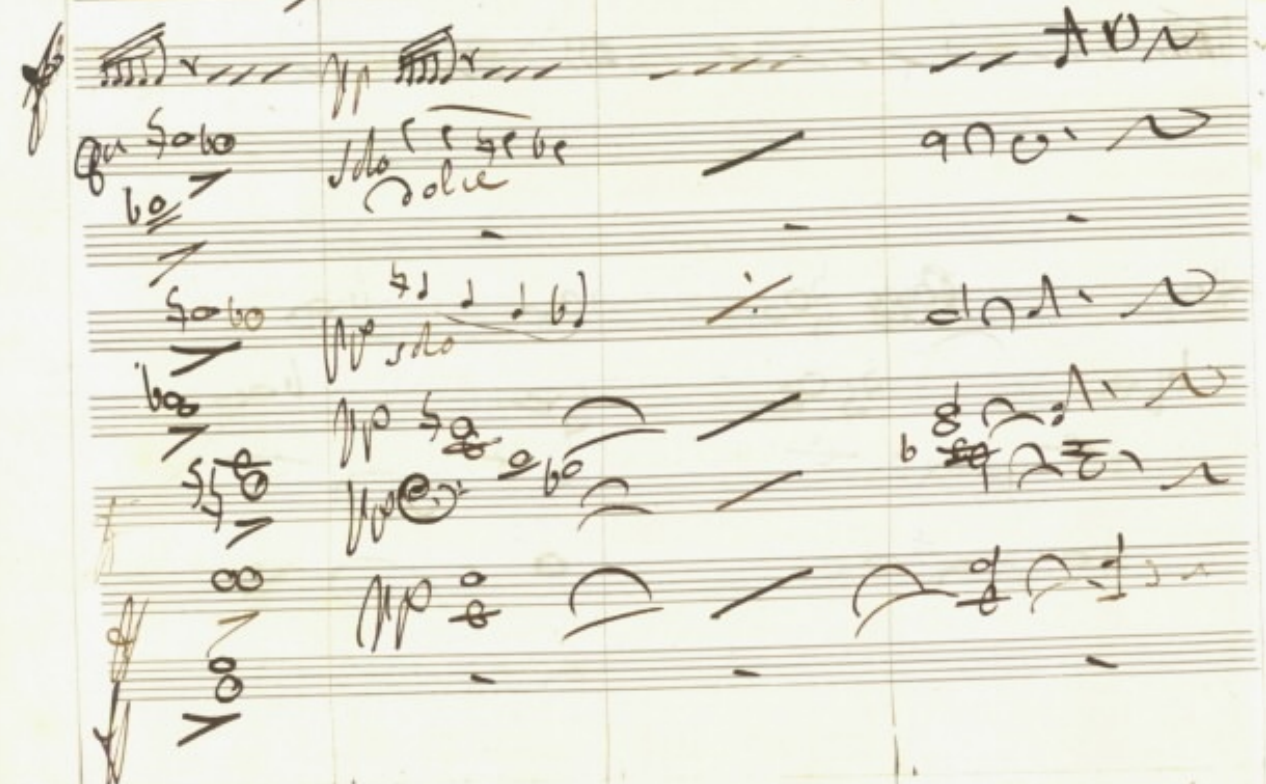 pp
solo
dolce
pp solo
pp
pp
pp